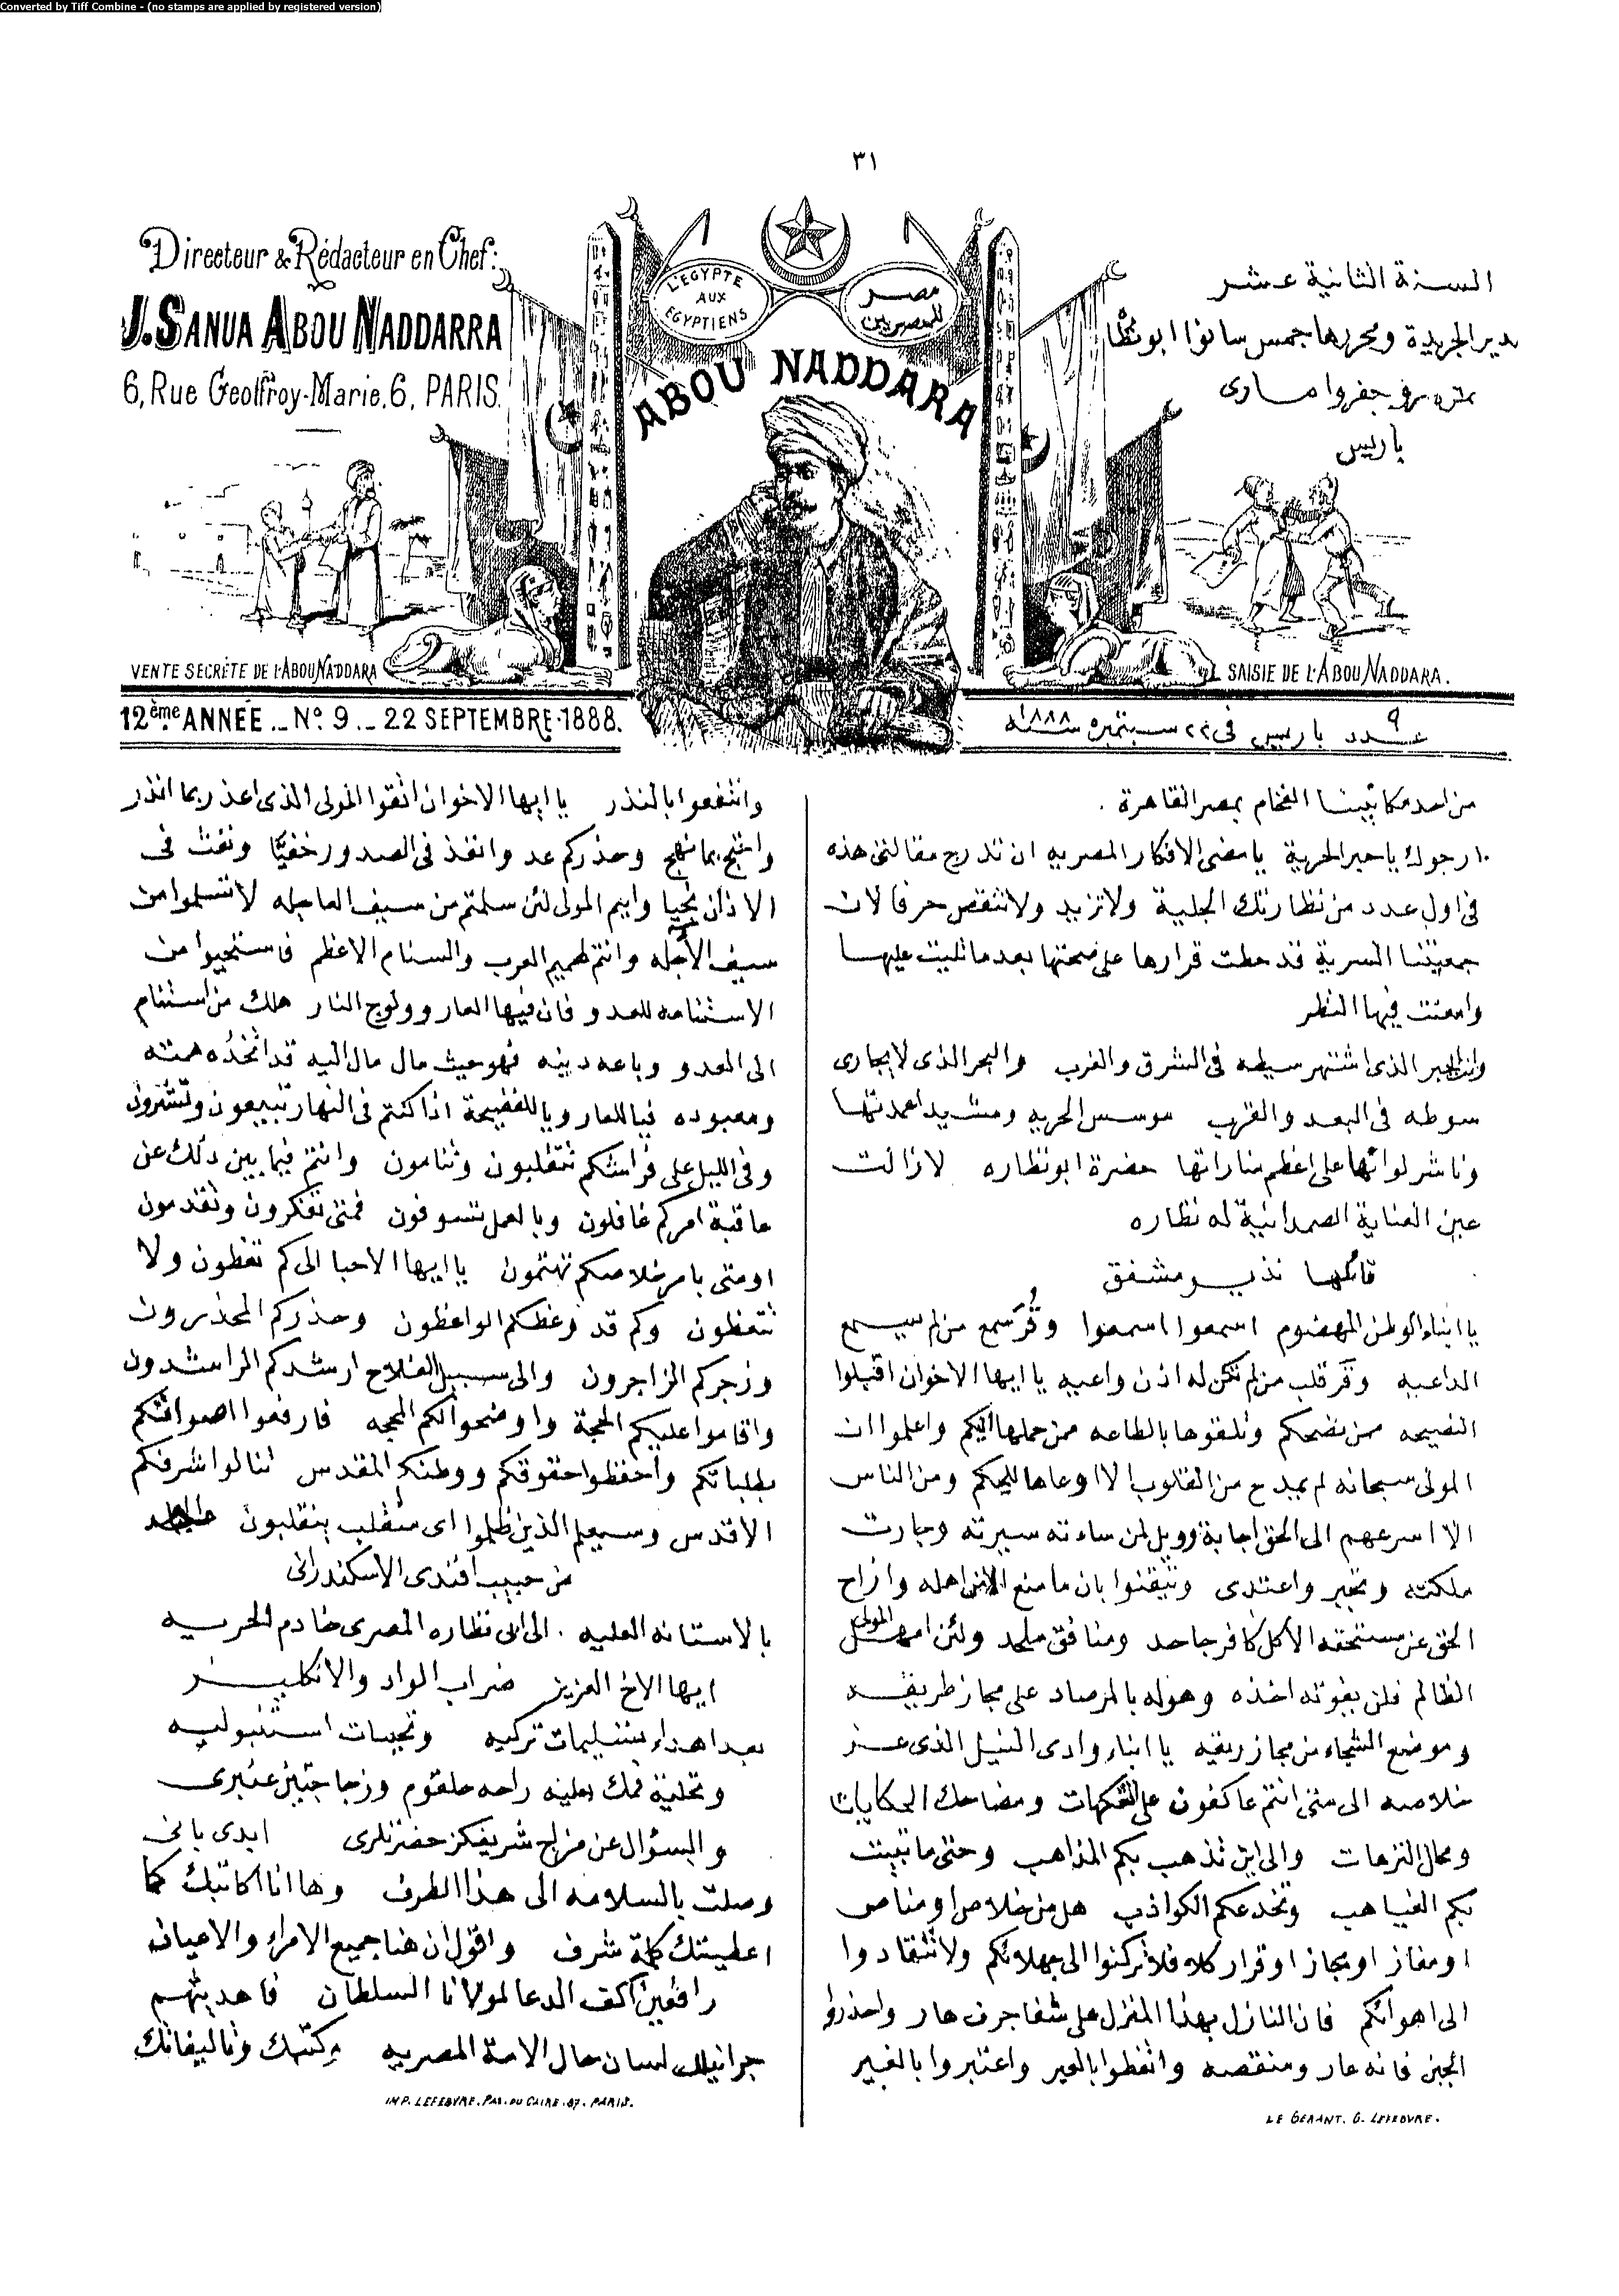 Converted by Tiff Combine - (no stamps are applied by registered version)
٣١
Directeur & Rédacteur en Chef:
J. SANUA ABOU NADDARRA
6, Rue Geoffroy-Marie, 6, PARIS.
L'EGYPTE
AUX
EGYPTIENS
مصر
للمصريين
ABOU NADDARA
السنة الثانية عشر
مدير الجريدة ومحررها جمس سانوا ابو نظارة
نمره ٦ رو جفروا مارى
باريس
VENTE SECRÈTE DE L'ABOU NADDARA
SAISIE DE L'ABOU NADDARA.
12ème ANNÉE _ No. 9 _ 22 SEPTEMBRE 1888.
عدد ٩ باريس فى ٢٢ سبتمبره سنة ١٨٨٨
من احد مكاتبينا الفخام بمصر القاهرة .
ارجوك يا حبر الحرية يا مضى الافكار المصريه ان تدرج مقالتى هذه
فى اول عدد من نظارتك الجلية ولا تزيد ولا تنقص حرفا لان
جمعيتنا السرية قد حطت قرارها على صحتها بعد ما تليت عليها
وامعنت فيها النظر
وانت الحبر الذى اشتهر سيطه فى الشرق والغرب والبحر الذى لا يجارى
سوطه فى البعد والقرب موسس الحريه ومشيد اعمدتها
وناشر لوائها على اعظم مناراتها حضرة ابو نظاره لازالت
عين العناية الصمدانية له نظاره
قائلها نذير مشفق
يا ابناء الوطن المهضوم اسمعوا اسمعوا وقر سمع من لم يسمع
الداعيه وقر قلب من لم تكن له اذن واعيه يا ايها الاخوان اقبلوا
النصيحه ممن نصحكم وتلقوها بالطاعه ممن حملها اليكم واعلموا ان
المولى سبحانه لم يمدح من القلوب الا اوعاها للحكم ومن الناس
الا اسرعهم الى الحق اجابة وويل لمن ساءته سيرته وجارت
ملكته وتجبر واعتدى وتيقنوا بان ما منع اهله وازاح
الحق عن مستحقه الا كل كافر جاحد ومنافق ملحد ولئن امهل المولى
الظالم فلن يفوته اخذه وهو له بالمرصاد على مجاز طريقه
وموضع الشجاء من مجاز ريقه يا ابناء وادى النيل الذى عز
خلاصه الى متى انتم عاكفون على الفكهات ومضاحك الحكايات
ومحال النزهات والى اين تذهب بكم المذاهب وحتى ما تبيت
بكم الغياهب وتخدعكم الكواذب هل من خلاص او مناص
او مفاز او مجاز او قرار كلا فلا تركنوا الى جهلائكم ولا تنقادوا
الى اهوائكم فان النازل بهذا المنزل على شفا جرف هار واحذروا
الجبن فانه عار ومنقصه واتعظوا بالعبر واعتبروا بالغير
LE GÉRANT. G. LEFEBVRE.
وانتفعوا بالنذر يا ايها الاخوان اتقوا المولى الذى اعذر بما انذر
واحتج بما نهج وحذركم عدوا نفذ فى الصدور خفيا ونفث فى
الاذان نجيا وايم المولى لئن سلمتم من سيف العاجله لا تسلموا من
سيف الآجله وانتم لهميم العرب والسنام الاعظم فاستحيوا من
الاستنامه للعدو فان فيها العار وولوج النار هلك من استنام
الى العدو وباعه دينه فهو حيث مال مال اليه قد اتخذه همته
ومعبوده فيا للعار ويا للفضيحة اذا كنتم فى النهار تبيعون وتشترون
وفى الليل على فراشكم تتقلبون وتنامون وانتم فيما بين ذلك عن
عاقبة امركم غافلون وبالعمل تسوفون فمتى تفكرون وتقدمون
او متى بامر خلاصكم تهتمون يا ايها الاحبا الى كم تعظون ولا
تتعظون وكم قد وعظكم الواعظون وحذركم المحذرون
وزجركم الزاجرون والى سبيل الفلاح ارشدكم الراشدون
واقاموا عليكم الحجة واوضحوا لكم المحجه فارفعوا اصواتكم
بطلباتكم واحفظوا حقوقكم ووطنكم المقدس تنالوا شرفكم
الاقدس وسيعلم الذين ظلموا اى منقلب ينقلبون
من حبيب افندى الاسكندرانى
بالاستانه العليه . الى ابى نظاره المصرى خادم الحريه
ايها الاخ العزيز ضراب الواد والانكليز
بعد اهداء تسليمات تركيه وتحيات استنبوليه
وتحلية فمك بعلبة راحه حلقوم وزجاجتين عنبرى
والسؤال عن مزاج شريفكز حضرتلرى ابدى بانى
وصلت بالسلامه الى هذا الطرف وها انا اكاتبك كما
اعطيتك كلمة شرف واقول ان هنا جميع الامراء والاعيان
رافعين اكف الدعا لمولانا السلطان فاهديتهم
جرانيلك لسان حال الامة المصريه وكتبك وتاليفاتك
IMP. LEFEBVRE. PAS. DU CAIRE. 87. PARIS.